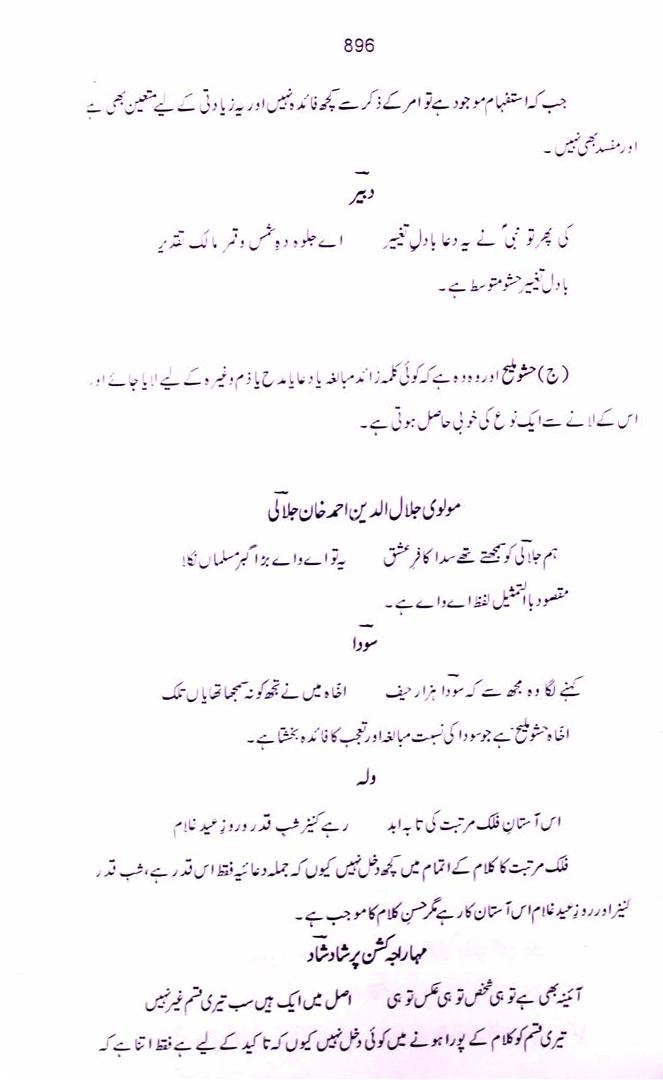 896
جب کہ استفہام موجود ہے تو امر کے ذکر سے کچھ فائدہ نہیں اور یہ زیادتی کے لیے متعین بھی ہے
اور مفسد بھی نہیں۔
دبیر
کی پھر تو نبیؐ نے یہ دعا بادلِ تغییر اے جلوہ دہِ شمس و قمر مالک تقدیر
بادل تغییر حشو متوسط ہے۔
(ج) حشو ملیح اور وہ وہ ہے کہ کوئی کلمہ زائد مبالغہ یا دعا یا مدح یا ذم وغیرہ کے لیے لایا جائے او
اس کے لانے سے ایک نوع کی خوبی حاصل ہوتی ہے۔
مولوی جلال الدین احمد خان جلالی
ہم جلالی کو سمجھتے تھے سدا کافرِ عشق یہ تو اے واے بڑا گبر مسلماں نکلا
مقصود با التمثیل لفظ اے واے ہے۔
سودا
کہنے لگا وہ مجھ سے کہ سودا ہزار حیف اخّاہ میں نے تجھ کو نہ سمجھا تھا یاں تلک
اخّاہ حشو ملیح ہے جو سودا کی نسبت مبالغہ اور تعجب کا فائدہ بخشتا ہے۔
ولہ
اس آستانِ فلک مرتبت کی تا بہ ابد رہے کنیز شب قدر و روزِ عید غلام
فلک مرتبت کا کلام کے اتمام میں کچھ دخل نہیں کیوں کہ جملہ دعائیہ فقط اس قدر ہے، شب قدر
کنیز اور روزِ عید غلام اس آستان کا رہے مگر حسنِ کلام کا موجب ہے۔
مہاراجہ کشن پرشاد شاد
آئینہ بھی ہے تو ہی شخص تو ہی عکس تو ہی اصل میں ایک ہیں سب تیری قسم غیر نہیں
تیری قسم کو کلام کے پورا ہونے میں کوئی دخل نہیں کیوں کہ تاکید کے لیے ہے فقط اتنا ہے کہ